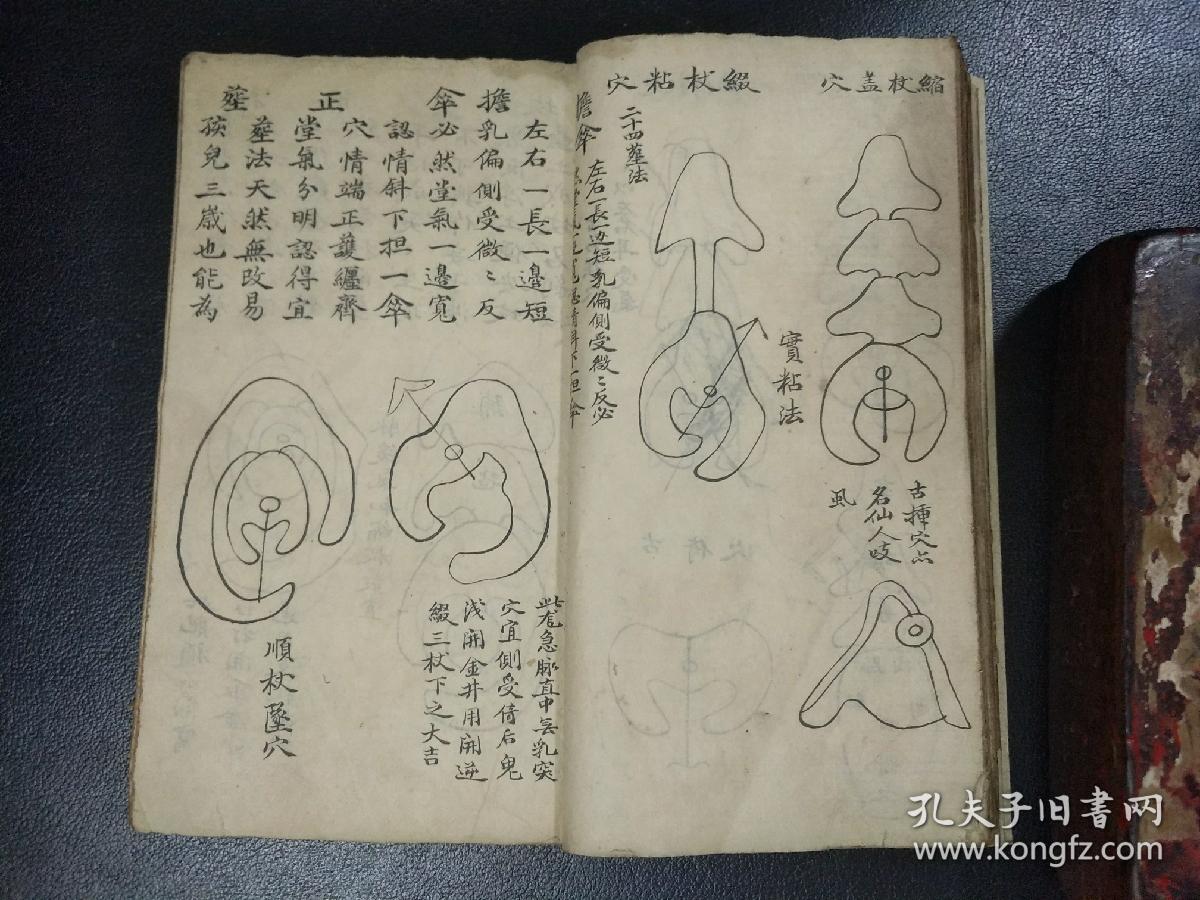 縮杖盖穴
綴杖粘穴
實粘法
古揷穴点
名仙人歧
風
二十四葬法
擔傘
左右一長一边短乳偏側受微〻反必
擔傘
左右一長一邊短
乳偏側受微〻反
必然堂氣一邊寬
認情斜下担一傘
正葬
穴情端正護纏齊
堂氣分明認得宜
葬法天然無改易
孩兒三歲也能為
急脉直中無乳突
穴宜側受倚后鬼
浅開金井用開逆
綴三杖下之大吉
順杖墜穴
孔夫子旧書网
www.kongfz.com